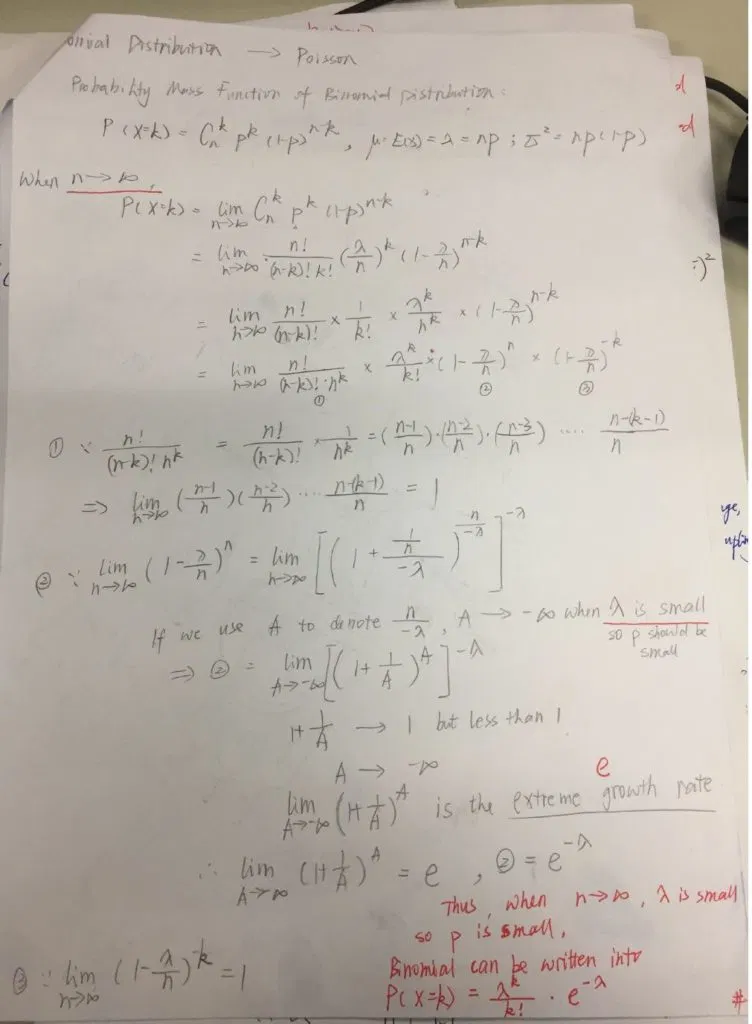 omial Distribution → Poisson
Probability Mass Function of Binomial Distribution:
P(X=k) = C_n^k p^k (1-p)^{n-k}, μ=E(x)=λ=np; σ²=np(1-p)
When n→∞,
P(X=k) = lim_{n→∞} C_n^k p^k (1-p)^{n-k}
= lim_{n→∞} n!/((n-k)! k!) (λ/n)^k (1-λ/n)^{n-k}
= lim_{n→∞} n!/(n-k)! × 1/k! × λ^k/n^k × (1-λ/n)^{n-k}
= lim_{n→∞} n!/((n-k)!·n^k) × λ^k/k! × (1-λ/n)^n × (1-λ/n)^{-k}
① ② ③
① ∵ n!/((n-k)! n^k) = n!/(n-k)! × 1/n^k = ((n-1)/n)·((n-2)/n)·((n-3)/n) ····· (n-(k-1))/n
⇒ lim_{n→∞} ((n-1)/n)((n-2)/n) ····· (n-(k-1))/n = 1
② ∵ lim_{n→∞} (1-λ/n)^n = lim_{n→∞} [(1 + 1/(n/-λ))^{n/-λ}]^{-λ}
If we use A to denote n/-λ, A → -∞ when λ is small
so p should be
small
⇒ ② = lim_{A→-∞} [(1+1/A)^A]^{-λ}
1+1/A → 1 but less than 1
A → -∞
e
lim_{A→-∞} (1+1/A)^A is the extreme growth rate
∴ lim_{A→-∞} (1+1/A)^A = e, ② = e^{-λ}
Thus, when n→∞, λ is small
so p is small,
③ ∵ lim_{n→∞} (1-λ/n)^{-k} = 1
Binomial can be written into
P(X=k) = λ^k/k! · e^{-λ}
#
:)²